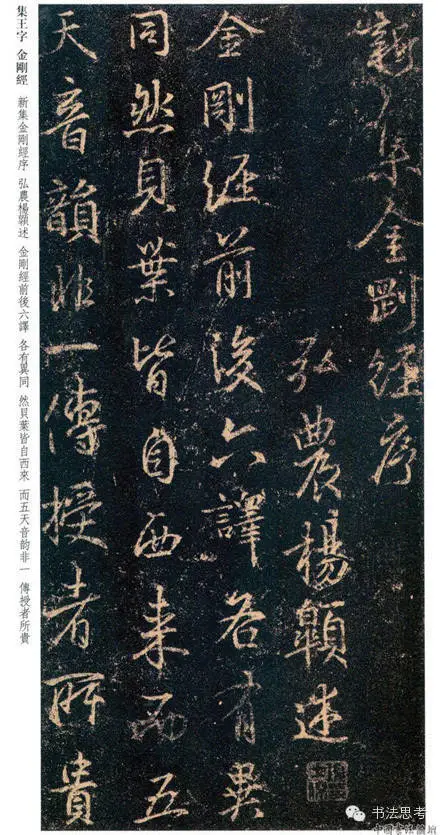 新集金剛經序
弘農楊述
金剛經前後六譯各有異
同然貝葉皆自西來而五
天音韻非一傳授者所貴
集王字 金剛經 新集金剛經序 弘農楊述 金剛經前後六譯 各有異同 然貝葉皆自西來 而五天音韵非一 傳授者所貴
书法思考